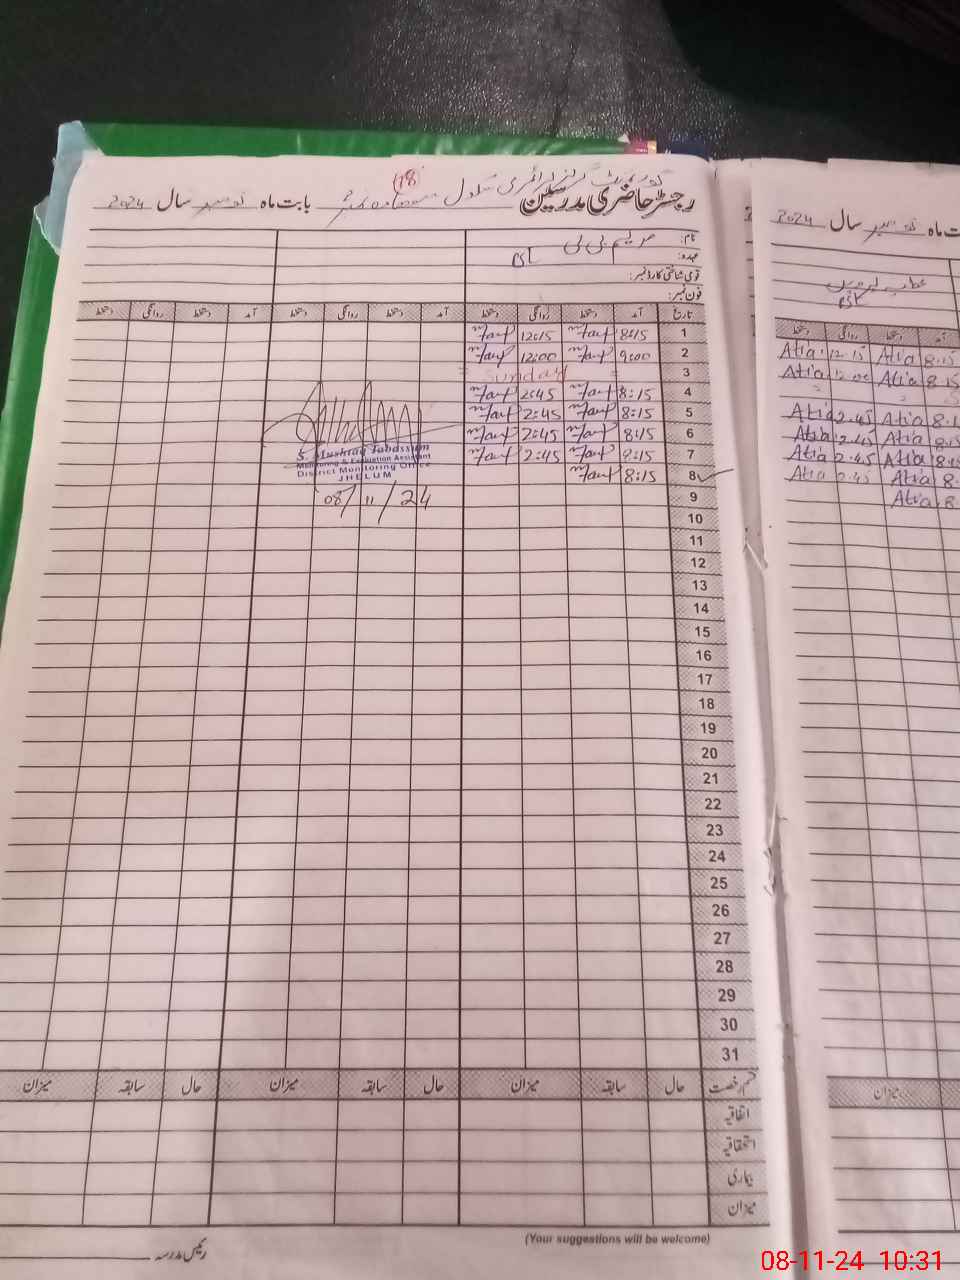 (18)
گورنمنٹ گرلز پرائمری سکول
رجسٹر حاضری مدرسین بابت ماہ نومبر سال 2024
نام: مریم بی بی
عہدہ:
قومی شناختی کارڈ نمبر:
فون نمبر:
تاریخ آمد دستخط روانگی دستخط آمد دستخط روانگی دستخط آمد دستخط روانگی دستخط
1 8:15 12:15
2 9:00 12:00
3 = Sunday =
4 8:15 2:45
5 8:15 2:45
6 8:15 2:45
7 9:15 2:45
8 8:15
9
10
11
12
13
14
15
16
17
18
19
20
21
22
23
24
25
26
27
28
29
30
31
S. Mushtaq Tabassum
Monitoring & Evaluation Assistant
District Monitoring Office
JHELUM
08/11/24
قسم رخصت حال سابقہ میزان حال سابقہ میزان حال سابقہ میزان
اتفاقیہ
استحقاقیہ
بیماری
میزان
رئیس مدرسہ
(Your suggestions will be welcome)
ماہ نومبر سال 2024
آمد دستخط روانگی دستخط
8:15 Atia 12:15 Atia
8:15 Atia 12:00 Atia
8:1 Atia 2:45 Atia
8:15 Atia 2:45 Atia
8:15 Atia 2:45 Atia
8: Atia 2:45 Atia
8: Atia
میزان
08-11-24 10:31